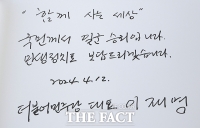 "함께 사는 세상"
국민께서 일군 승리입니다.
민생정치로 보답드리겠습니다.
2024. 4. 12.
더불어민주당 대표 이재명
THE FACT